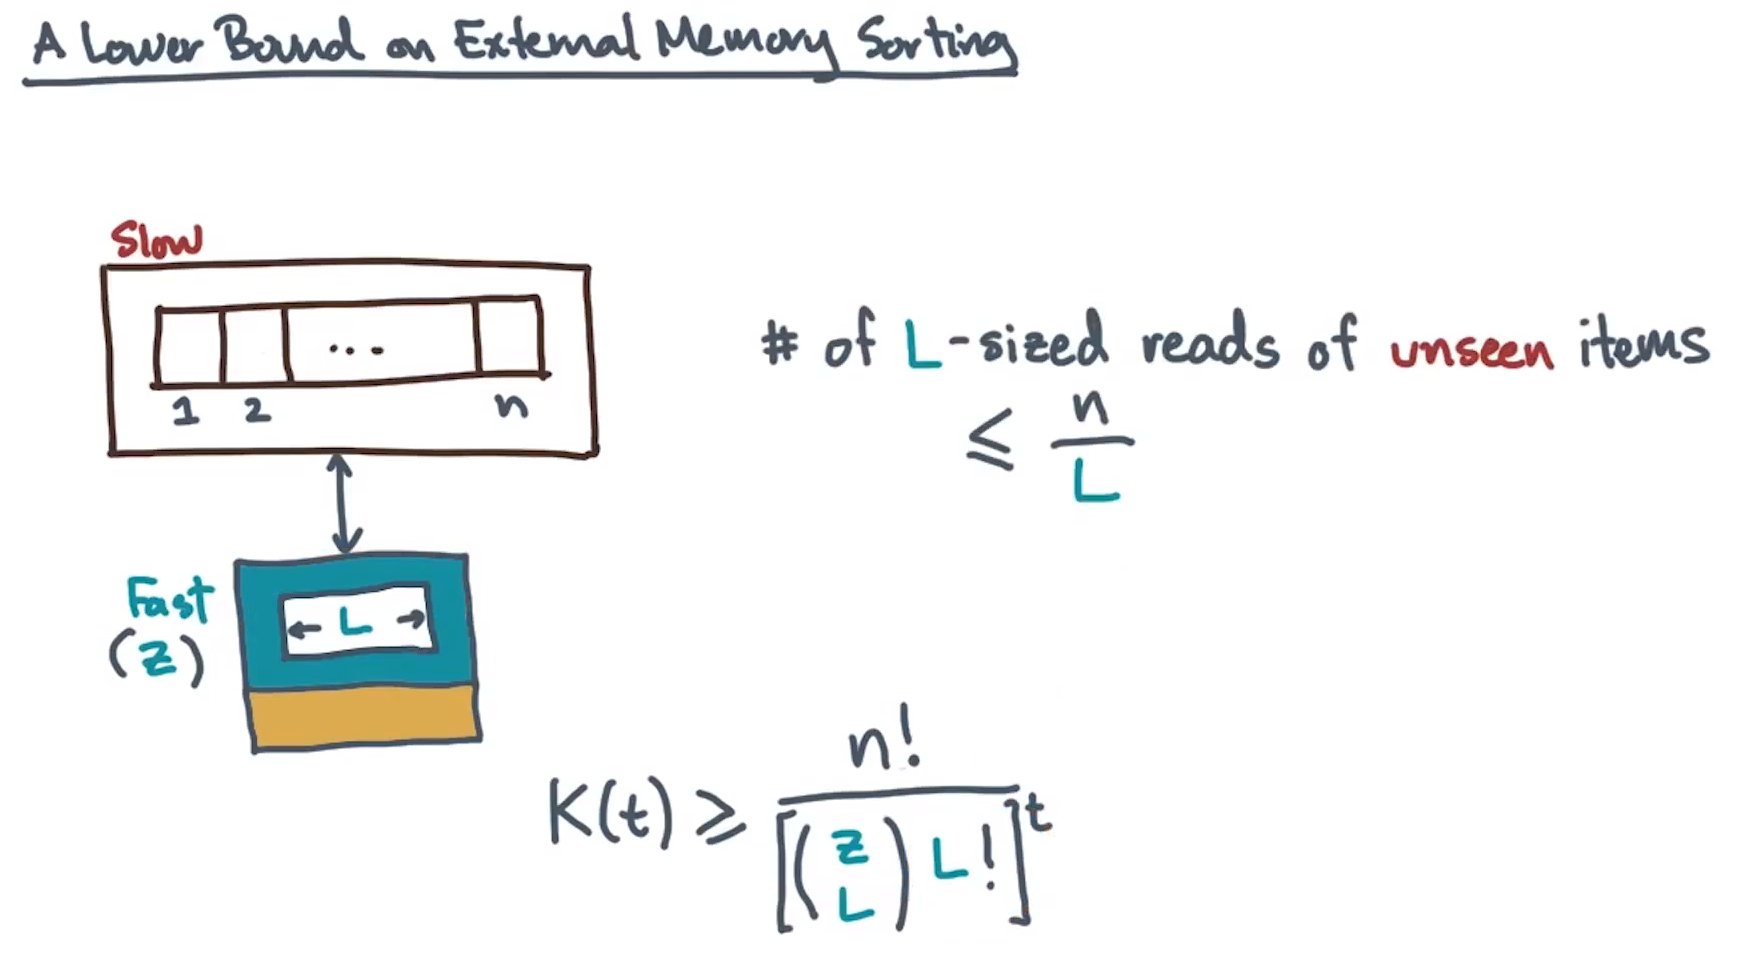 A Lower Bound on External Memory Sorting
Slow
...
1 2 n
# of L-sized reads of unseen items
≤ n/L
Fast
(Z)
← L →
K(t) ≥ n! / [(Z L) L!]^t